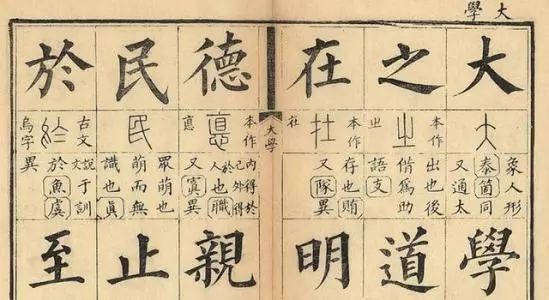 大學
大
象人形
泰箇同
又通太
學
之
本作㞢
出也後
偕爲助
語支
道
在
本作
存也賄
又隊異
明
大學
德
本作悳
內得於
己外得
於人也職
又寘異
親
民
衆萌也
萌而無
識也眞
止
於
古文
烏字
說文于訓
於魚虞
異
至